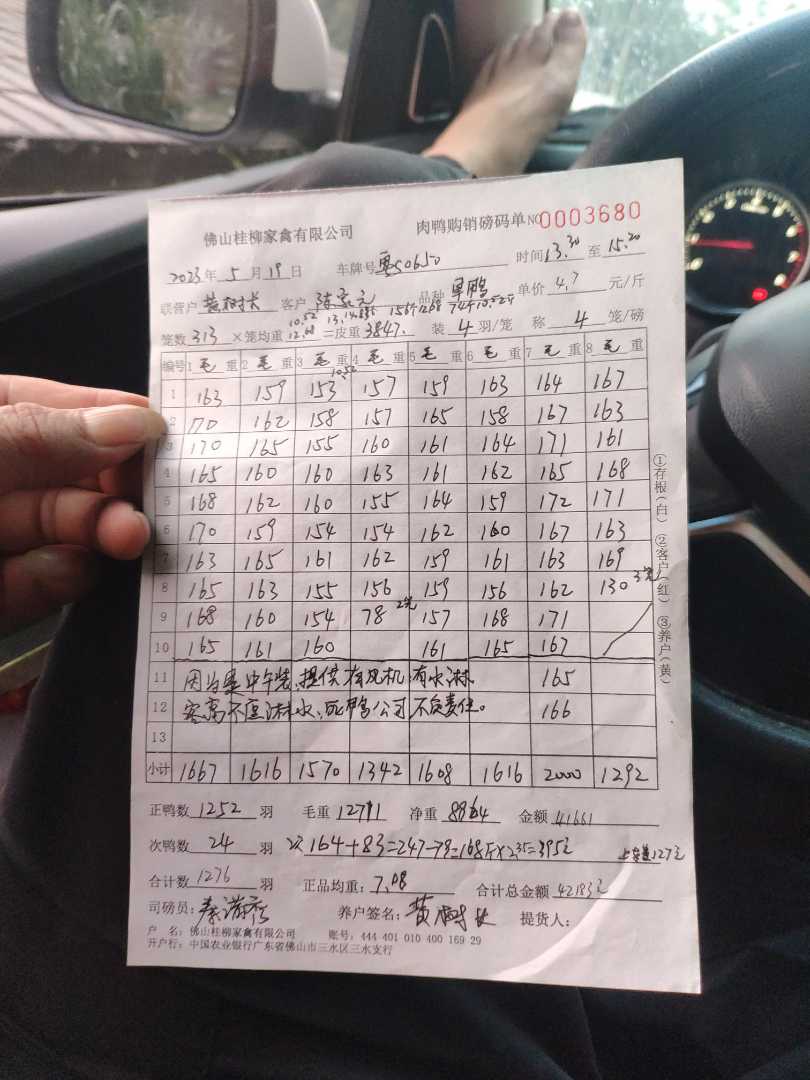 佛山桂柳家禽有限公司 肉鸭购销磅码单 NO 0003680
2023年 5月 19日 车牌号 粤S0650 时间 13.30 至 15.20
联营户 黄树长 客户 品种 单价 4.7 元/斤
10.52
笼数 313 ×笼均重 12.08 =皮重 3847. 装 4 羽/笼 称 4 笼/磅
编号 1 毛 重 2 毛 重 3 毛 重 4 毛 重 5 毛 重 6 毛 重 7 毛 重 8 毛 重
10.52
1 163 159 153 157 159 163 164 167
2 170 162 158 157 165 158 167 163
3 170 165 155 160 161 164 171 161
4 165 160 160 163 161 162 165 168
5 168 162 160 155 164 159 172 171
6 170 159 154 154 162 160 167 163
7 163 165 161 162 159 161 163 169
8 165 163 155 156 159 156 162 130 3笼
9 168 160 154 78 2笼 157 168 171
10 165 161 160 161 165 167
11 因为是中午装,提供有风机,有水淋. 165
12 客高不愿淋水,死鸭公司不负责任。 166
13
小计 1667 1616 1570 1342 1608 1616 2000 1292
正鸭数 1252 羽 毛重 12711 净重 8864 金额 41661
次鸭数 24 羽 164+83=247-79=168斤×2.35=395元 127元
合计数 1276 羽 正品均重: 7.08 合计总金额 42183元
司磅员: 养户签名: 黄树长 提货人:
户 名: 佛山桂柳家禽有限公司 账号: 444 401 010 400 169 29
开户行: 中国农业银行广东省佛山市三水区三水支行
①存根(白) ②客户(红) ③养户(黄)